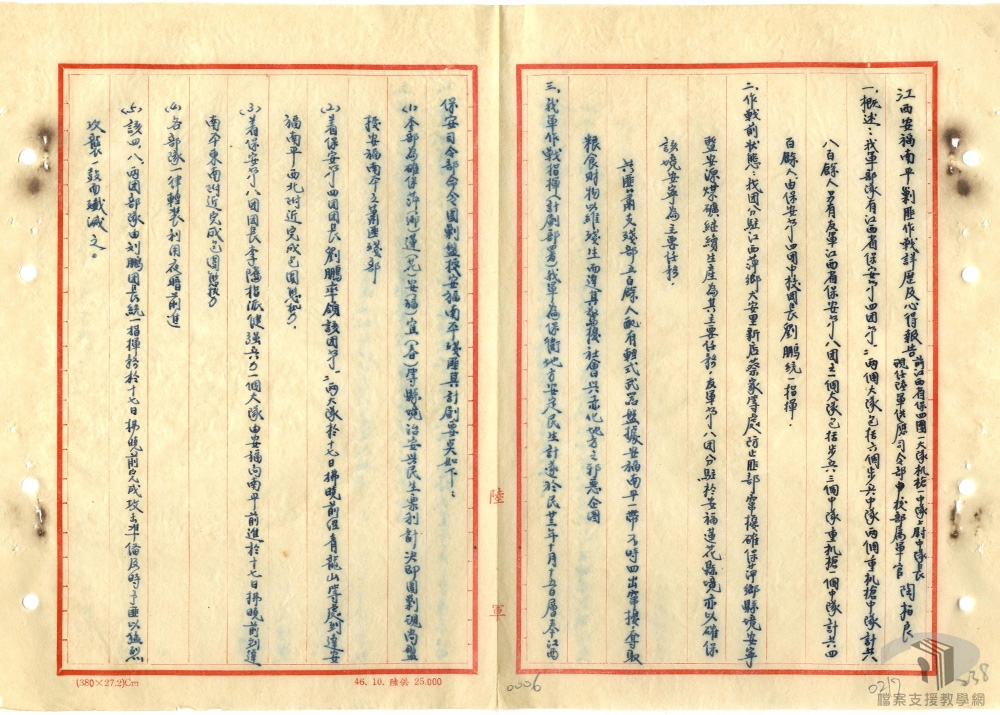 江西安福南平剿匪作戰詳歷及心得報告
前江西省保四團一大隊机槍一中隊上尉中隊長
現任陸軍供應司令部中校部屬軍官
陶柏良
一、概述：我軍部隊有江西省保安第四團第一二兩個大隊包括六個步兵中隊兩個重机槍中隊計共
八百餘人另有友軍江西省保安第八團之一個大隊包括步兵三個中隊重机槍一個中隊計共四
百餘人由保安第四團中校團長劉鵬統一指揮．
二、作戰前狀態：我團分駐江西萍鄉大安里新店蔡家等處防止匪部竄擾確保萍鄉縣境安寧
暨安源煤礦繼續生產為其主要任務，友軍第八團分駐於安福蓮花縣境亦以確保
該境安寧為主要任務．
共匪蕭支殘部五百餘人配有輕式武器盤據安福南平一帶不時四出竄擾奪取
糧食財物以維殘生而逞其驚擾社會與赤化地方之邪惡企圖
三、我軍作戰指揮（計劃部署）我軍為保衛地方安定民生計遂於民廿三年十月十五日層奉江西
保安司令部命令圍剿盤據安福南平殘匪其計劃要點如下：
(1)本部為確保萍（鄉）蓮（花）安福）宜（春）等縣境治安與民生眾利計決即圍剿現尚盤
據安福南平之蕭匪殘部
(2)着保安第四團團長劉鵬率領該團第一二兩大隊於十七日拂曉前經青龍山等處到達安
福南平西北附近完成包圍態勢．
(3)着保安第八團團長李 指派健強兵力一個大隊由安福向南平前進於十七日拂曉前到達
南平東南附近完成包圍態勢
(4)各部隊一律輕裝利用夜暗前進
(5)該四、八、兩團部隊由刘鵬團長統一指揮於十七日拂曉前完成攻击準備及時予匪以猛烈
攻襲一鼓而殲滅之。
陸 軍
(380×27.2)Cm
46. 10. 陳榮 25.000
0006
0217
038
檔案支援教學網